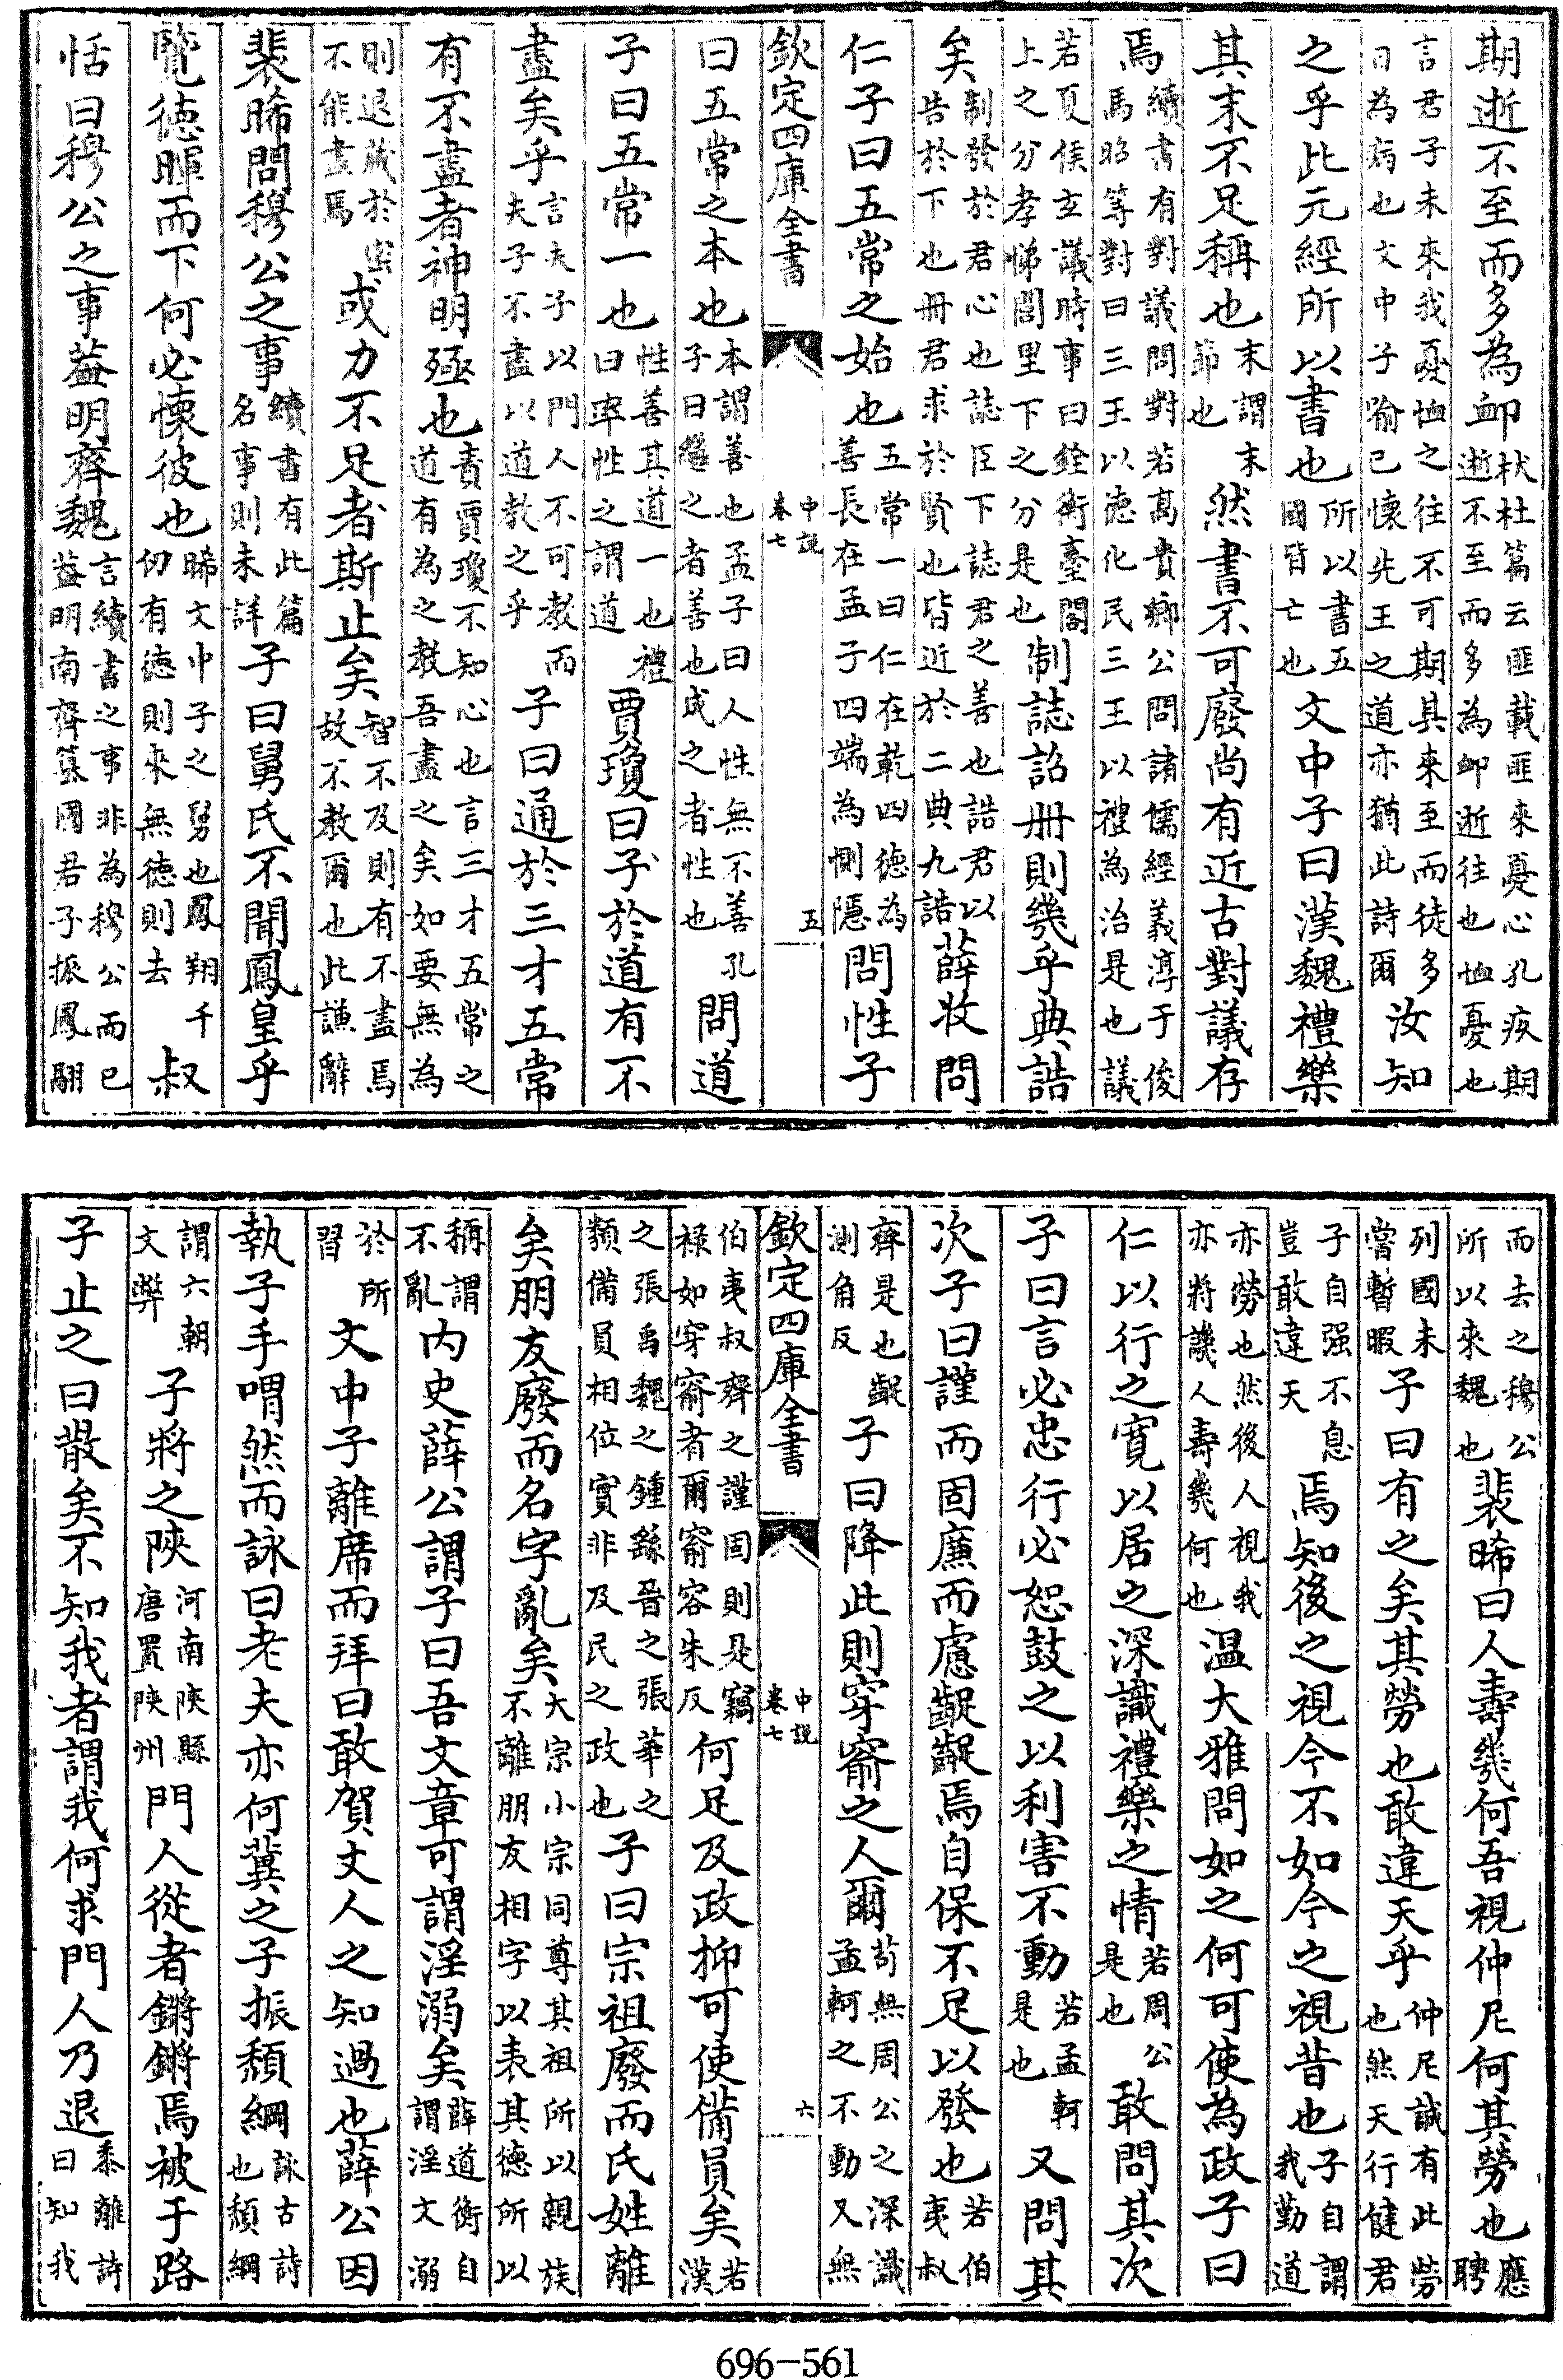 期逝不至而多為䘏杕杜篇云匪載匪來憂心孔疚期逝不至而多為䘏逝往也恤憂也
言君子未來我憂恤之往不可期具來至而徒多日為病也文中子喻已懷先王之道亦猶此詩爾汝知
之乎此元經所以書也所以書五國皆亡也文中子曰漢魏禮樂
其末不足稱也末謂末節也然書不可廢尚有近古對議存
焉續書有對議問對若高貴鄉公問諸儒經義淳于俊馬昭等對曰三王以德化民三王以禮為治是也議
若夏侯玄議時事曰銓衡臺閣上之分孝悌閭里下之分是也制誌詔冊則幾乎典誥
矣制發於君心也誌臣下誌君之善也誥君以告於下也冊君求於賢也皆近於二典九誥薛收問
仁子曰五常之始也五常一曰仁在乾四德為善長在孟子四端為惻隱問性子
欽定四庫全書 中説卷七 五
曰五常之本也本謂善也孟子曰人性無不善孔子曰繼之者善也成之者性也問道
子曰五常一也性善其道一也禮曰率性之謂道賈瓊曰子於道有不
盡矣乎言夫子以門人不可教而夫子不盡以道教之乎子曰通於三才五常
有不盡者神明殛也責賈瓊不知心也言三才五常之道有為之教吾盡之矣如要無為
則退藏於密不能盡焉或力不足者斯止矣智不及則有不盡焉故不教爾也此謙辭
裴晞問穆公之事續書有此篇名事則未詳子曰舅氏不聞鳳皇乎
覽德暉而下何必懷彼也晞文中子之舅也鳳翔千仞有德則來無德則去叔
恬曰穆公之事葢明齊魏言續書之事非為穆公而已葢明南齊篡國君子振鳳翮
而去之穆公所以來魏也裴晞曰人壽幾何吾視仲尼何其勞也應聘
列國未嘗暫暇子曰有之矣其勞也敢違天乎仲尼誠有此勞也然天行健君
子自强不息豈敢違天焉知後之視今不如今之視昔也子自謂我勤道
亦勞也然後人視我亦將譏人壽幾何也温大雅問如之何可使為政子曰
仁以行之寛以居之深識禮樂之情若周公是也敢問其次
子曰言必忠行必恕鼓之以利害不動若孟軻是也又問其
次子曰謹而固廉而慮齪齪焉自保不足以發也若伯夷叔
齊是也齪測角反子曰降此則穿窬之人爾苟無周公之深識孟軻之不動又無
欽定四庫全書 中説卷七 六
伯夷叔齊之謹固則是竊禄如穿窬者爾窬容朱反何足及政抑可使備員矣若漢
之張禹魏之鍾繇晉之張華之類備員相位實非及民之政也子曰宗祖廢而氏姓離
矣朋友廢而名字亂矣大宗小宗同尊其祖所以親族不離朋友相字以表其德所以
稱謂不亂内史薛公謂子曰吾文章可謂淫溺矣薛道衡自謂淫文溺
於所習文中子離席而拜曰敢賀丈人之知過也薛公因
執子手喟然而詠曰老夫亦何冀之子振頽綱詠古詩也頽綱
謂六朝文弊子將之陝河南陝縣唐置陝州門人從者鏘鏘焉被于路
子止之曰散矣不知我者謂我何求門人乃退黍離詩曰知我
696-561